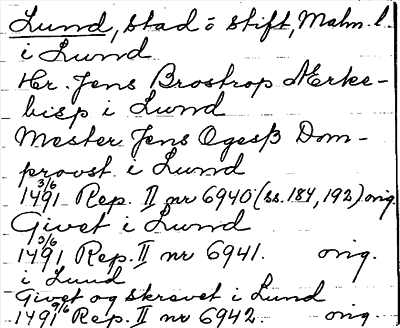 Lund, stad o stift, Malm. l.
i Lund
Hr. Jens Brostrop Ærke-
bisp i Lund
Mester Jens Ogesß Dom-
provst i Lund
3/6
1491 Rep. II nr 6940 (ss. 184, 192) orig.
Givet i Lund
3/6
1491 Rep. II nr 6941. orig.
i Lund
Givet og skrevet i Lund
9/6
1491 Rep. II nr 6942. orig.